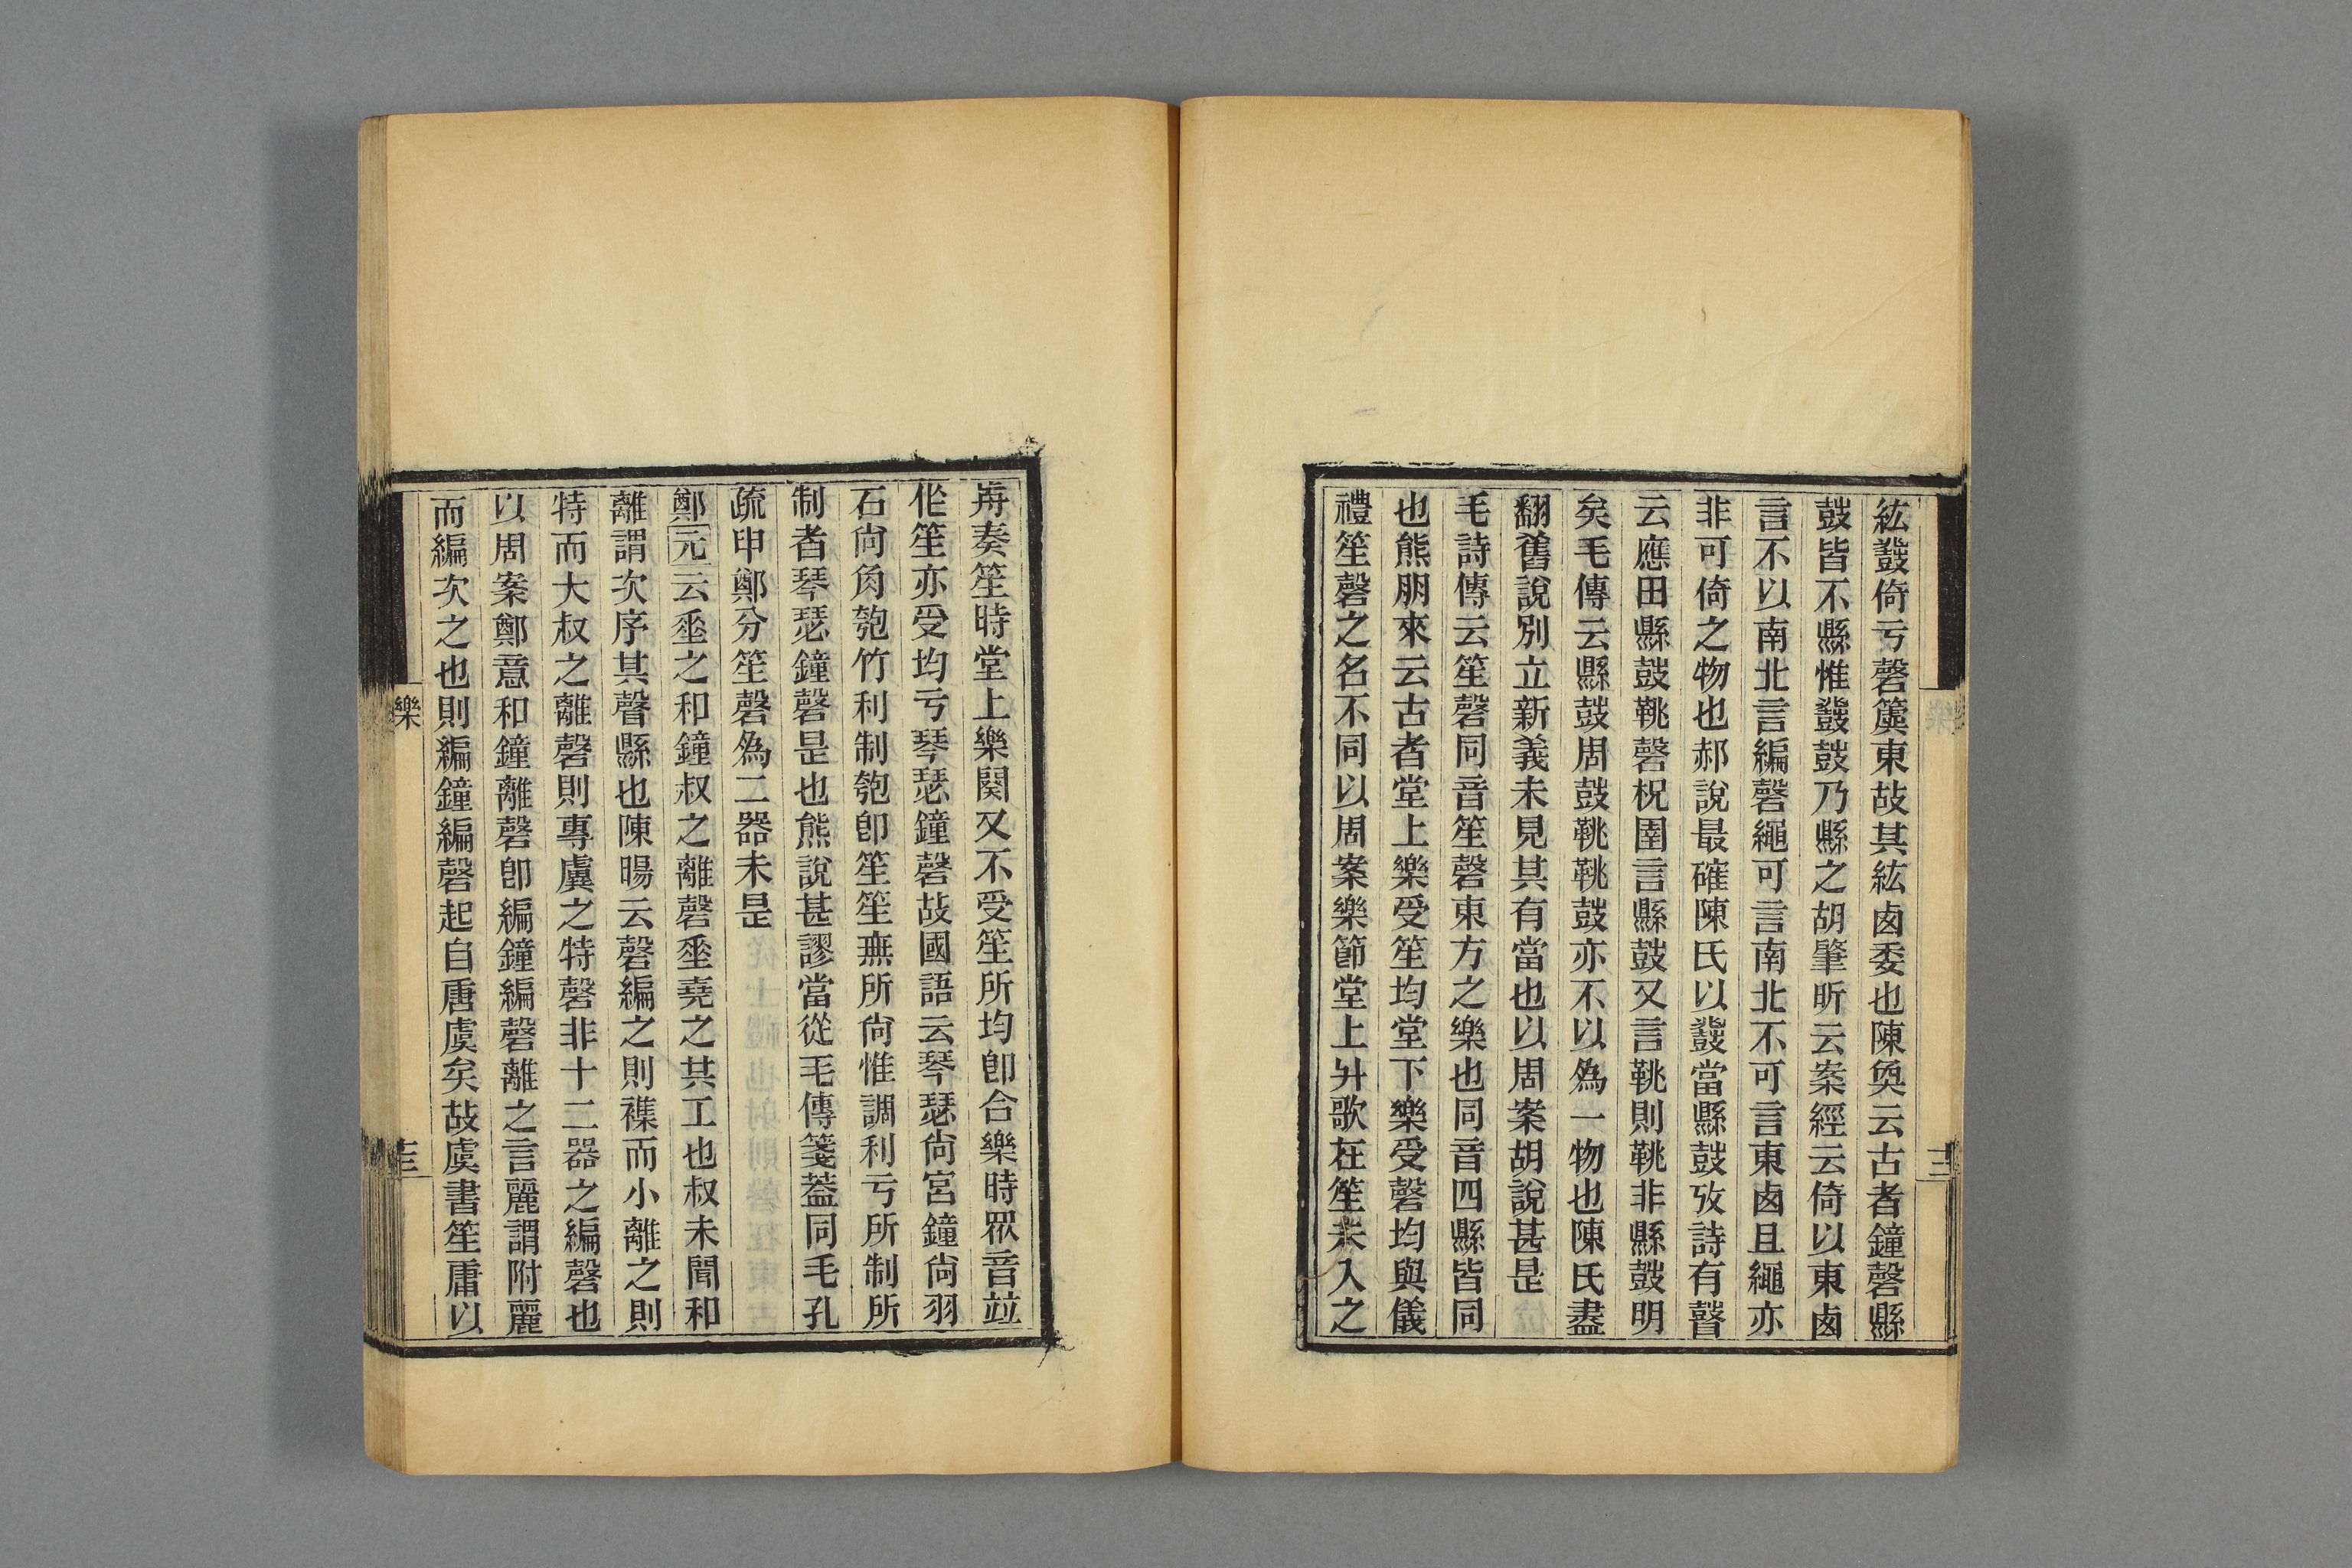 紘鼗倚亏磬簴東故其紘鹵委也陳奐云古者鐘磬縣
鼓皆不縣惟鼗鼓乃縣之胡肇昕云案經云倚以東鹵
言不以南北言編磬繩可言南北不可言東鹵且繩亦
非可倚之物也郝說最確陳氏以鼗當縣鼓攷詩有瞽
云應田縣鼓鞉磬柷圉言縣鼓又言鞉則鞉非縣鼓明
矣毛傳云縣鼓周鼓鞉鞉鼓亦不以為一物也陳氏盡
翻舊說別立新義未見其有當也以周案胡說甚是
毛詩傳云笙磬同音笙磬東方之樂也同音四縣皆同
也熊朋來云古者堂上樂受笙均堂下樂受磬均與儀
禮笙磬之名不同以周案樂節堂上升歌在笙未入之
樂
三
再奏笙時堂上樂闋又不受笙所均卽合樂時眾音竝
作笙亦受均亏琴瑟鐘磬故國語云琴瑟尙宮鐘尙羽
石尙角匏竹利制匏卽笙笙無所尙惟調利亏所制所
制者琴瑟鐘磬是也熊說甚謬當從毛傳箋葢同毛孔
疏申鄭分笙磬為二器未是
鄭元云垂之和鐘叔之離磬垂堯之其工也叔未聞和
離謂次序其聲縣也陳暘云磬編之則襍而小離之則
特而大叔之離磬則專虡之特磬非十二器之編磬也
以周案鄭意和鐘離磬卽編鐘編磬離之言麗謂附麗
而編次之也則編鐘編磬起自唐虞矣故虞書笙庸以
樂